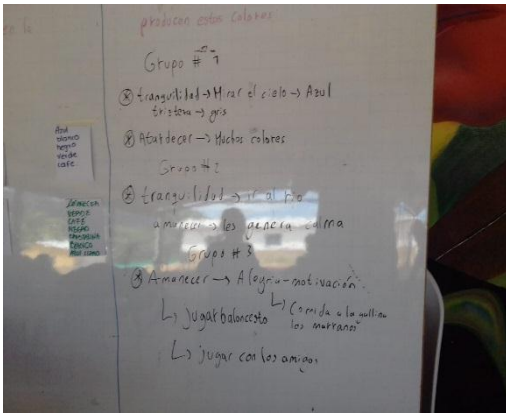 en la
producen estos colores
Grupo # 1
tranquilidad → Mirar el cielo → Azul
tristeza → gris
Atardecer → Muchos colores
Grupo # 2
tranquilidad → ir al rio
amanecer → les genera calma
Grupo # 3
Amanecer → Alegria - motivación
↳ jugar baloncesto
↳ Comida a la gallina
los marranos
↳ jugar con los amigos
Azul
blanco
negro
verde
cafe
CAFE
NEGRO
BLANCO